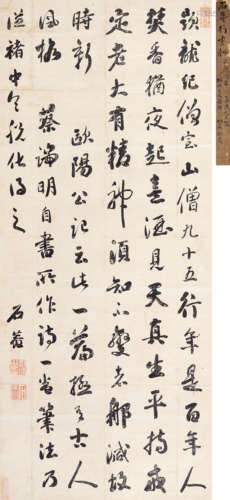 題龍紀僧室山僧九十五行年是百年人
焚香猶夜起喜酒見天真生平持戒
定老大有精神須知不變者那減故
時新 歐陽公記云此一篇極有古人
風格 蔡端明自書所作詩一卷筆法乃
從褚中令脫化得之 石菴